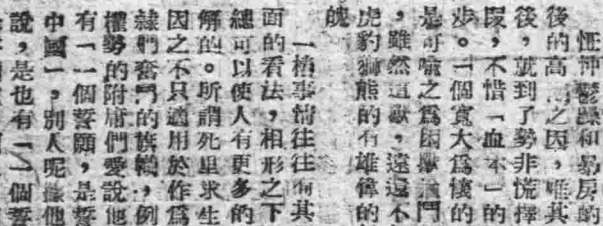 怔忡鬱躁和易的
後的高之因，唯其
後，就到了勢非慌擇
，不惜「血不」的
步。一個寬大爲懷的
是可喻之爲困獸鬥
，雖然這獸，遠遠不
虎豹獅熊的有雄偉的
魄
一樁事情往往有其
面的看法，相形之下
總可以使人有更多的
解的。所謂死里求生
因之不只適用於作爲
隸們奮鬥的旗幟，例
權勢的附庸們愛說他
有「一個誓願，是誓
中國」，別人呢據他
說，是也有「一個誓